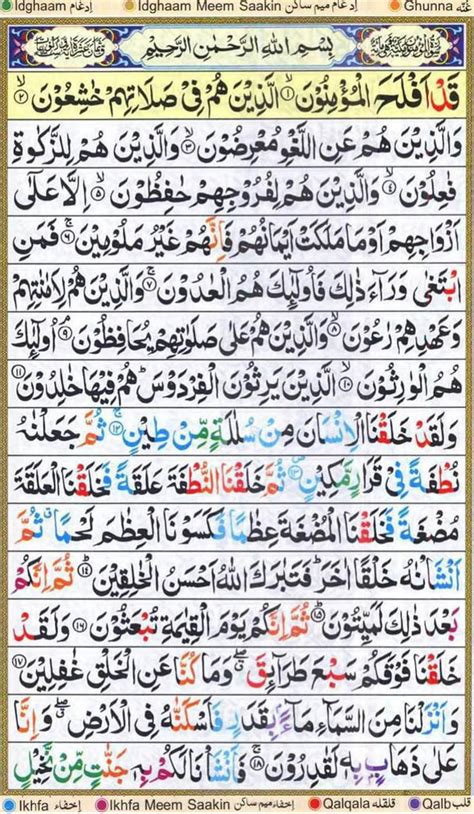 Idghaam ادغام Idghaam Meem Saakin ادغام میم ساکن Ghunna غنّہ
بِسْمِ اللهِ الرَّحْمٰنِ الرَّحِيْمِ
قَدْ اَفْلَحَ الْمُؤْمِنُوْنَ ۙ﴿۱﴾ الَّذِيْنَ هُمْ فِيْ صَلَاتِهِمْ خٰشِعُوْنَ ۙ﴿۲﴾
وَالَّذِيْنَ هُمْ عَنِ اللَّغْوِ مُعْرِضُوْنَ ۙ﴿۳﴾ وَالَّذِيْنَ هُمْ لِلزَّكٰوةِ
فٰعِلُوْنَ ۙ﴿۴﴾ وَالَّذِيْنَ هُمْ لِفُرُوْجِهِمْ حٰفِظُوْنَ ۙ﴿۵﴾ اِلَّا عَلٰۤى
اَزْوَاجِهِمْ اَوْ مَا مَلَكَتْ اَيْمَانُهُمْ فَاِنَّهُمْ غَيْرُ مَلُوْمِيْنَ ۚ﴿۶﴾ فَمَنِ
ابْتَغٰى وَرَآءَ ذٰلِكَ فَاُولٰٓئِكَ هُمُ الْعٰدُوْنَ ۚ﴿۷﴾ وَالَّذِيْنَ هُمْ لِاَمٰنٰتِهِمْ
وَعَهْدِهِمْ رٰعُوْنَ ۙ﴿۸﴾ وَالَّذِيْنَ هُمْ عَلٰى صَلَوٰتِهِمْ يُحَافِظُوْنَ ۘ﴿۹﴾ اُولٰٓئِكَ
هُمُ الْوٰرِثُوْنَ ۙ﴿۱۰﴾ الَّذِيْنَ يَرِثُوْنَ الْفِرْدَوْسَ ؕ هُمْ فِيْهَا خٰلِدُوْنَ ﴿۱۱﴾
وَلَقَدْ خَلَقْنَا الْاِنْسَانَ مِنْ سُلٰلَةٍ مِّنْ طِيْنٍ ۚ﴿۱۲﴾ ثُمَّ جَعَلْنٰهُ
نُطْفَةً فِيْ قَرَارٍ مَّكِيْنٍ ۪﴿۱۳﴾ ثُمَّ خَلَقْنَا النُّطْفَةَ عَلَقَةً فَخَلَقْنَا الْعَلَقَةَ
مُضْغَةً فَخَلَقْنَا الْمُضْغَةَ عِظٰمًا فَكَسَوْنَا الْعِظٰمَ لَحْمًا ۗ ثُمَّ
اَنْشَاْنٰهُ خَلْقًا اٰخَرَ ؕ فَتَبٰرَكَ اللهُ اَحْسَنُ الْخٰلِقِيْنَ ؕ﴿۱۴﴾ ثُمَّ اِنَّكُمْ
بَعْدَ ذٰلِكَ لَمَيِّتُوْنَ ؕ﴿۱۵﴾ ثُمَّ اِنَّكُمْ يَوْمَ الْقِيٰمَةِ تُبْعَثُوْنَ ﴿۱۶﴾ وَلَقَدْ
خَلَقْنَا فَوْقَكُمْ سَبْعَ طَرَآئِقَ ۖ وَمَا كُنَّا عَنِ الْخَلْقِ غٰفِلِيْنَ ﴿۱۷﴾
وَاَنْزَلْنَا مِنَ السَّمَآءِ مَآءًۢ بِقَدَرٍ فَاَسْكَنّٰهُ فِي الْاَرْضِ ۖ وَاِنَّا
عَلٰى ذَهَابٍۭ بِهٖ لَقٰدِرُوْنَ ۚ﴿۱۸﴾ فَاَنْشَاْنَا لَكُمْ بِهٖ جَنّٰتٍ مِّنْ نَّخِيْلٍ
Ikhfa اخفاء Ikhfa Meem Saakin اخفاء میم ساکن Qalqala قلقلہ Qalb قلب